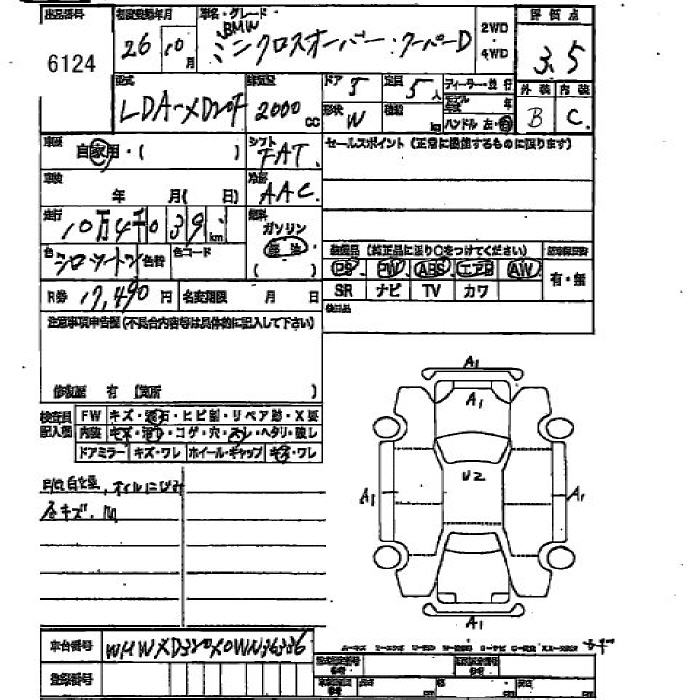 出品番号 初度登録年月 車名・グレード 2WD 評価点
6124 26 10月 BMW ミニクロスオーバー・クーパーD ・4WD 3.5
型式 排気量 ドア 5 定員 5人 ディーラー・並行 外装 内装
LDA-XD20F 2000cc 形状 W 積載 kg モデル年式 年 B C
ハンドル 左・右
車歴 自家用・( ) シフト FAT セールスポイント(正常に機能するものに限ります)
車検 年 月( 日) 冷房 AAC
走行 10万4千039km 燃料 ガソリン
色 シロツートン 色替 色コード 軽油 装備品(純正品に限り〇をつけてください)
( ) PS PW ABS エアB AW 有・無
R券 17,490円 名変期限 月 日 SR ナビ TV カワ
注意事項申告欄(不具合内容等は具体的に記入して下さい) 後日品
修復歴 有(箇所 )
検査員記入欄 FW キズ・飛石・ヒビ割・リペア跡・X要
内装 キズ・汚レ・コゲ・穴・スレ・ヘタリ・破レ
ドアミラー キズ・ワレ ホイール・キャップ キズ・ワレ
オイルにじみ
キズ
A1
A1
U2
A1
A1
A1
車台番号 WMWXD320X0WN36336
登録番号